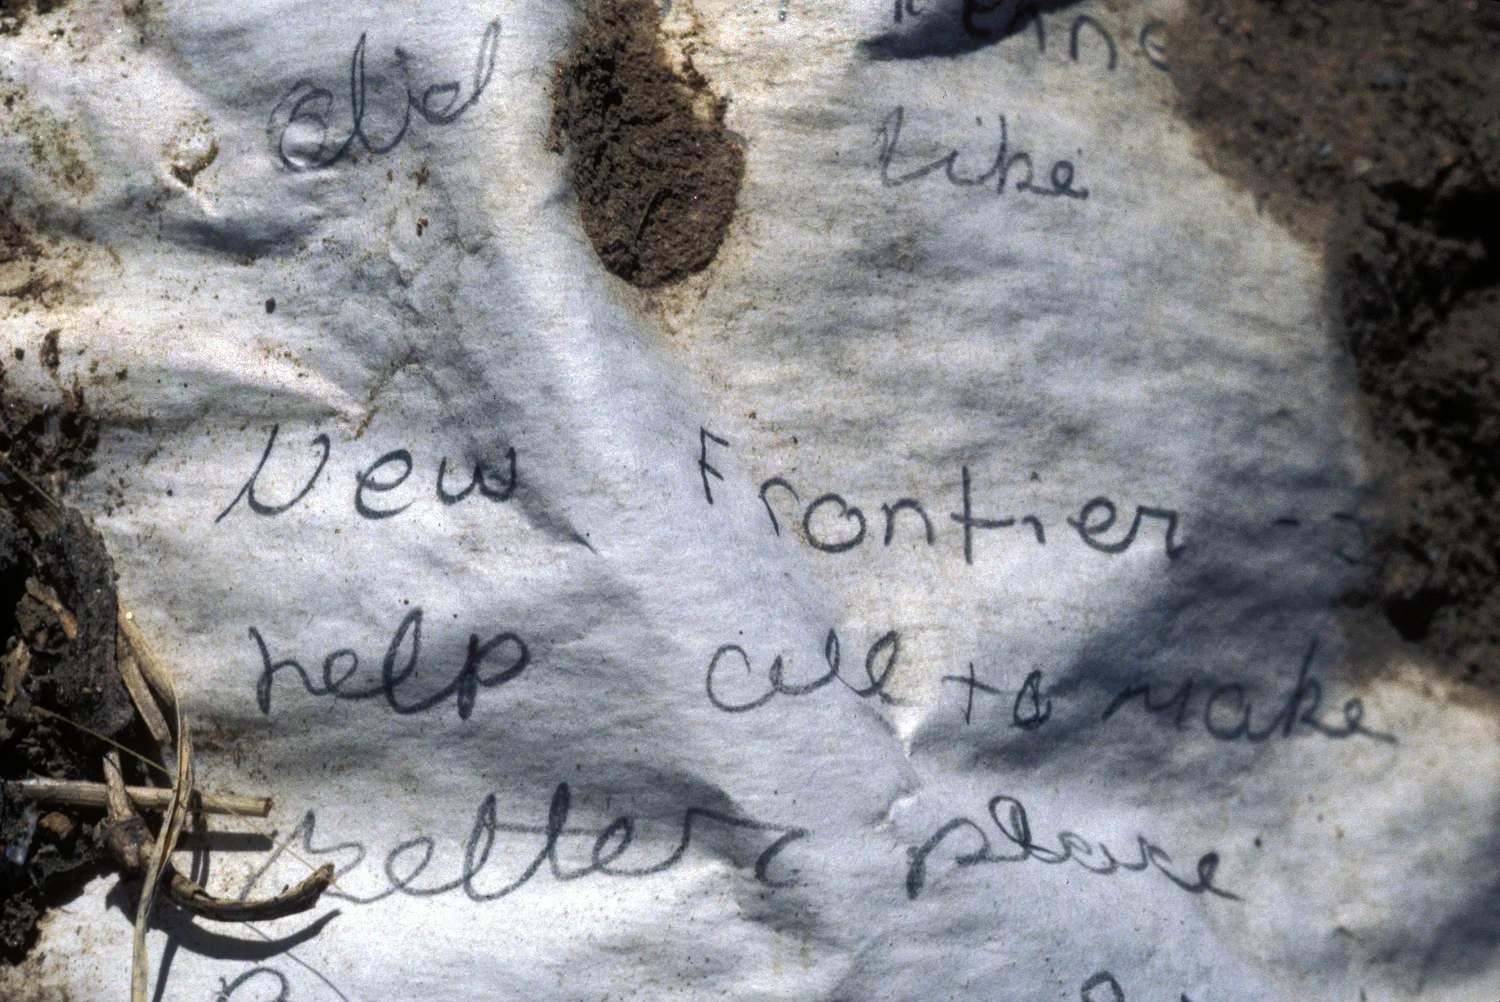 did like
New Frontier -
help all to make
better place